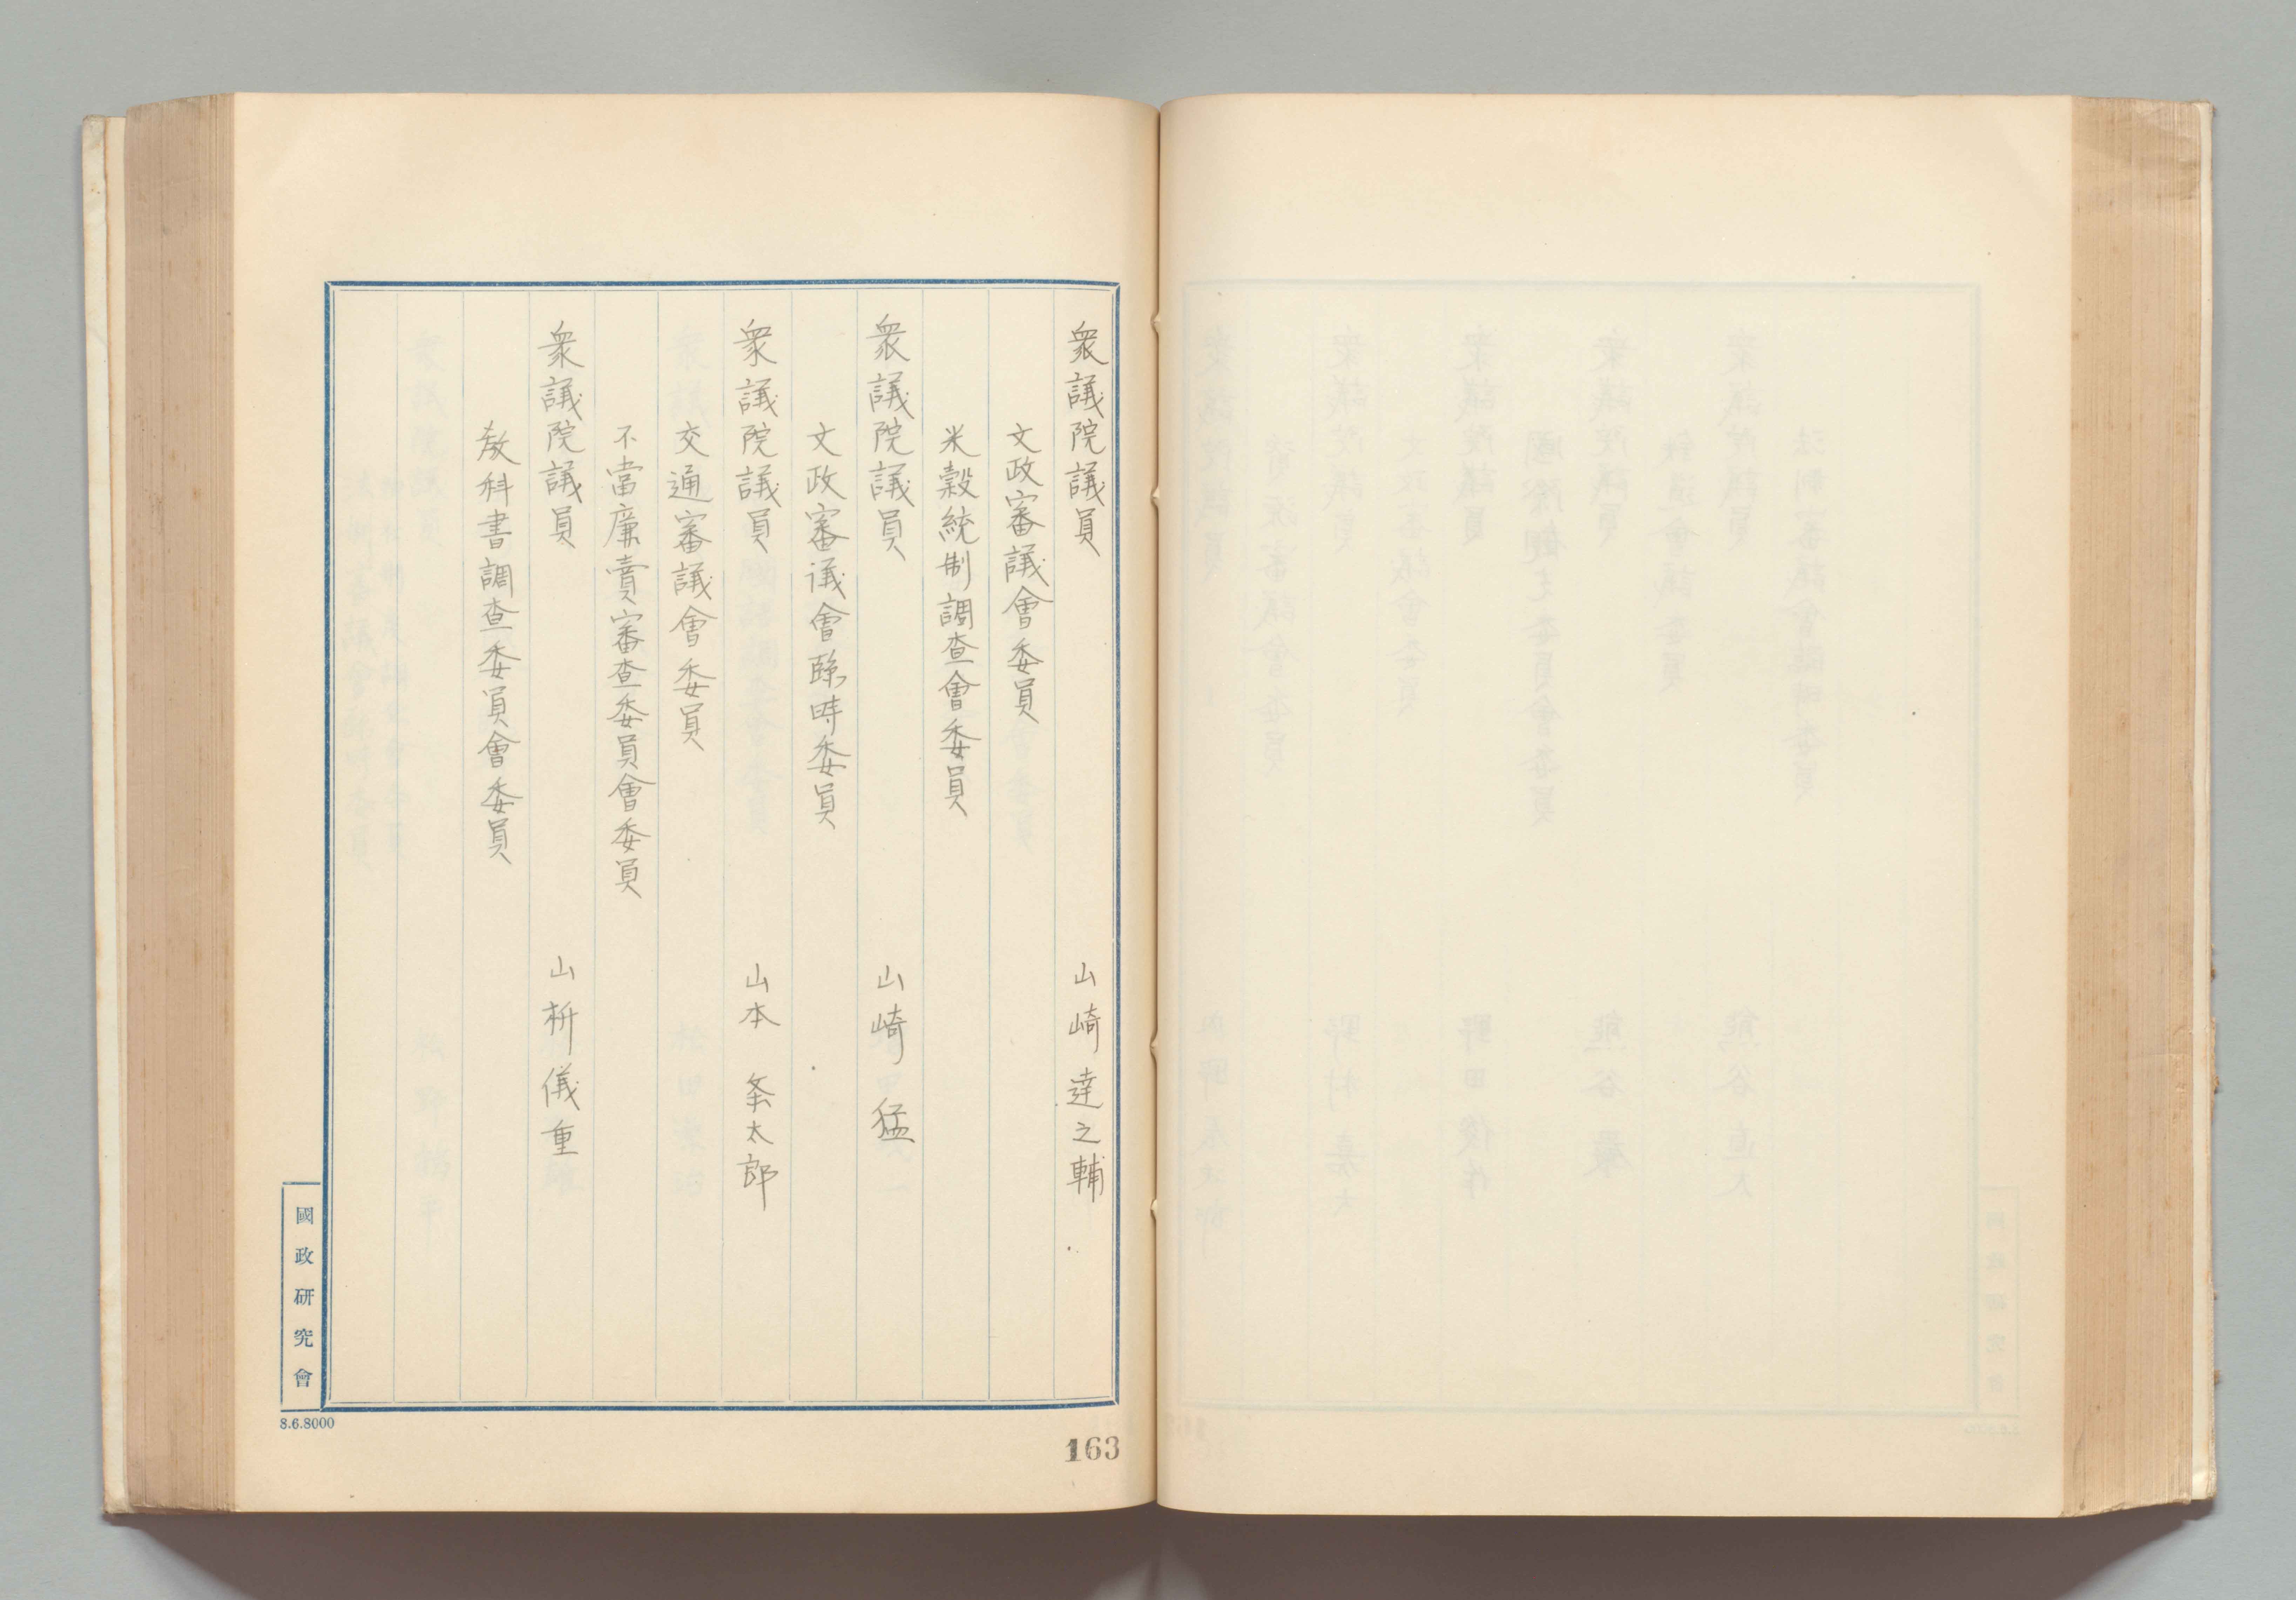 衆議院議員 山崎達之輔
文政審議會委員
米穀統制調査會委員
衆議院議員 山崎猛
文政審議會臨時委員
衆議院議員 山本条太郎
交通審議會委員
不當廉賣審査委員會委員
衆議院議員 山枡儀重
教科書調査委員會委員
國政研究會
8.6.8000
163